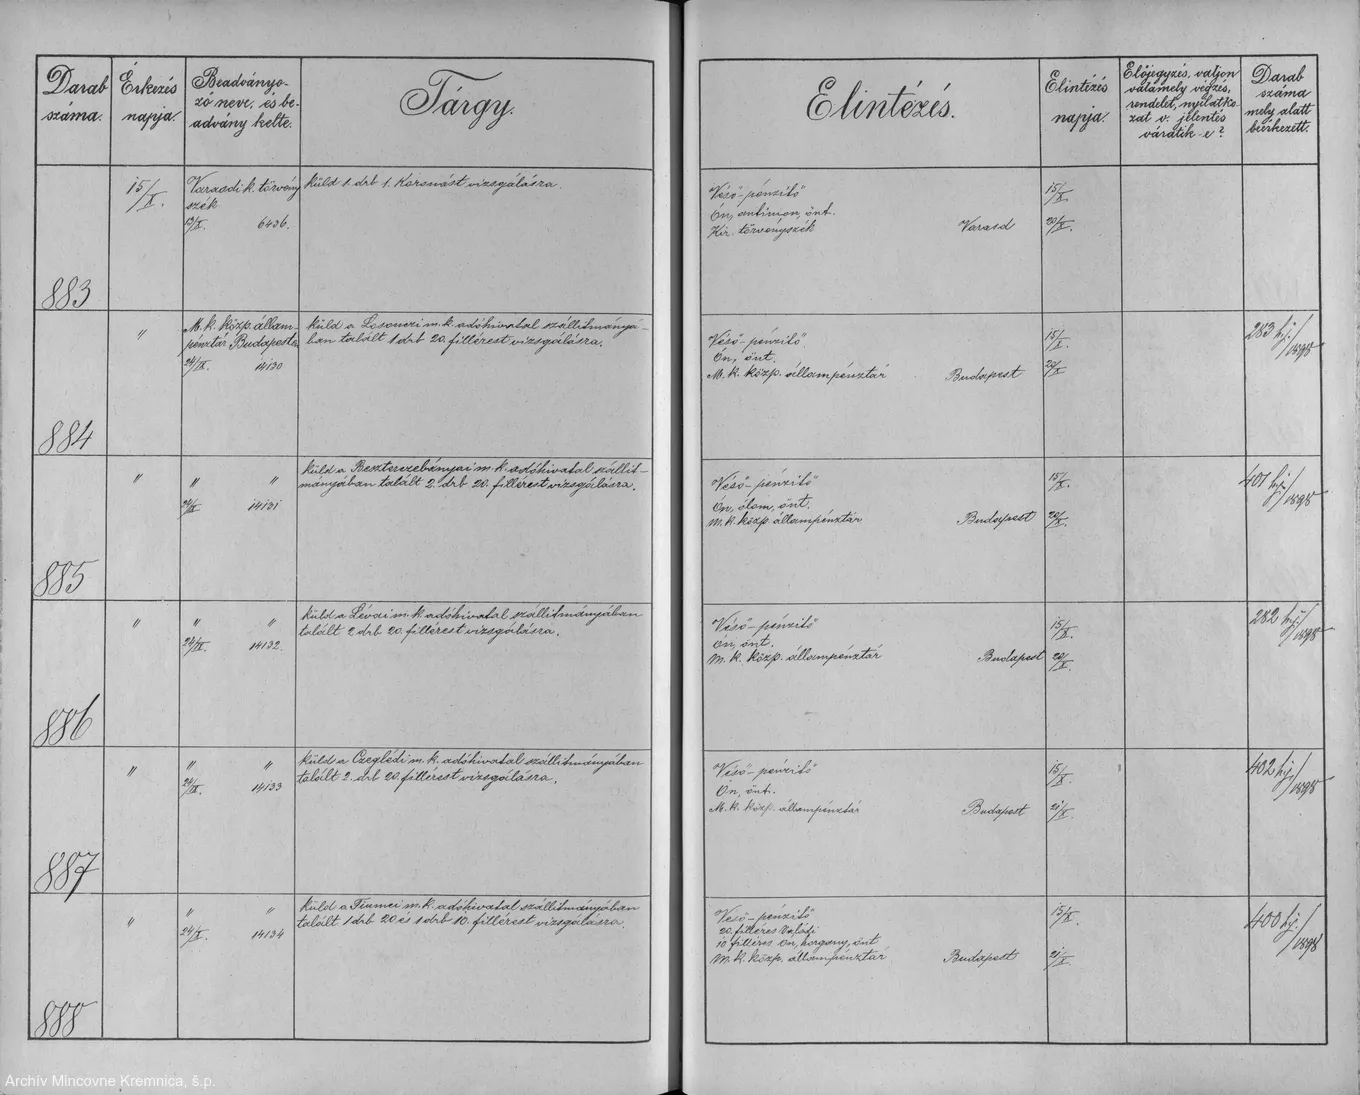 Darab
száma.
Érkezés
napja.
Beadványo-
zó neve, és be-
advány kelte.
Tárgy.
Elintézés.
Elintézés
napja.
Előjegyzés, valjon
valamely végzés,
rendelet, nyilatko
zat v. jelentés
váratik-e?
Darab
száma
mely alatt
beérkezett.
883
15/X.
Varasdi k. törvény
szék
13/X. 6436.
küld 1 drb 1. Koronást vizsgálásra.
Véső-pénzitő
Ón, antimon, önt.
Kir. törvényszék Varasd
15/X.
20/X.
884
"
M. k. közp. állam-
pénztár Budapest
24/IX. 14130
küld a Losonczi m. k. adóhivatal szállítmányá-
ban talált 1 drb 20. fillérest vizsgálásra.
Véső-pénzitő
Ón, önt.
M. k. közp. állampénztár Budapest
15/X.
20/X.
283 hj./1898
885
" " "
24/IX. 14131
küld a Beszterczebányai m. k. adóhivatal szállit-
mányában talált 2. drb 20. fillérest vizsgálásra.
Véső-pénzitő
Ón, ólom, önt.
M. k. közp. állampénztár Budapest
15/X.
20/X.
401 hj./1898
886
" " "
24/IX. 14132.
küld a Lévai m. k. adóhivatal szállitmányában
talált 2 drb 20. fillérest vizsgálásra.
Véső-pénzitő
Ón, önt.
M. k. közp. állampénztár Budapest
15/X.
20/X.
282 hj./1898
887
" " "
24/IX. 14133
küld a Czeglédi m. k. adóhivatal szállitmányában
talált 2. drb 20. fillérest vizsgálásra.
Véső-pénzitő
Ón, önt.
M. k. közp. állampénztár Budapest
15/X.
21/X.
402 hj./1898
888
" " "
24/X. 14134
küld a Fiumei m. k. adóhivatal szállitmányában
talált 1 drb 20 és 1 drb 10. fillérest vizsgálásra.
Véső-pénzitő
20. filléres Valódi
10 filléres Ón, horgany, önt
M. k. közp. állampénztár Budapest
15/X.
21/X.
400 hj./1898
Archív Mincovne Kremnica, š.p.